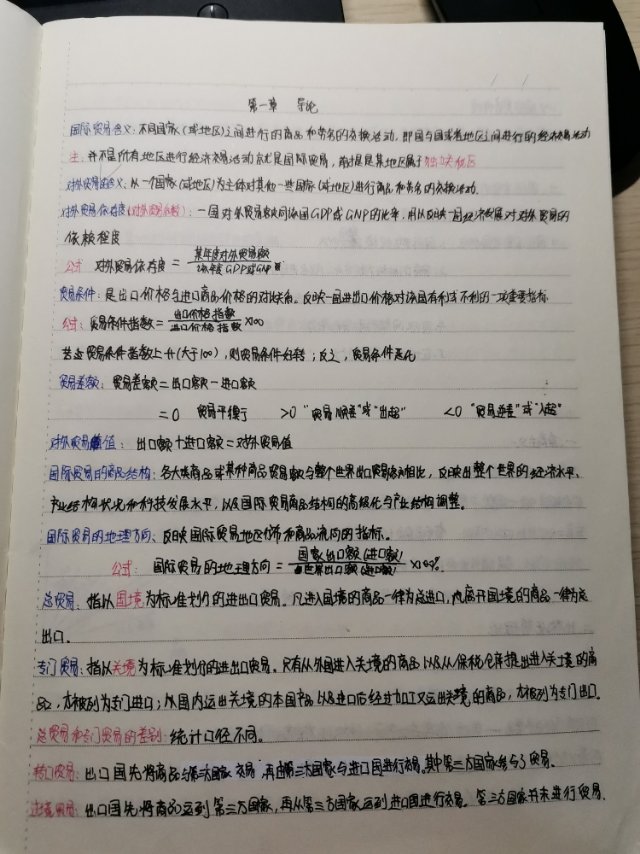 第一章 导论
国际贸易含义：不同国家(或地区)之间进行的商品和劳务的交换活动，即国与国或者地区之间进行的经济交易活动
注：并不是所有地区进行经济交易活动就是国际贸易，前提是某地区属于独立关税区
对外贸易含义：以一个国家(或地区)为主体对其他一些国家(或地区)进行商品和劳务的交换活动。
对外贸易依存度(对外贸易系数)：一国对外贸易额同该国GDP或GNP的比率，用以反映一国经济发展对对外贸易的
依赖程度
公式 对外贸易依存度 = 某年度对外贸易额
该年度GDP或GNP
贸易条件：是出口价格与进口商品价格的对比关系。反映一国进出口价格对该国有利或不利的一项重要指标
公式：贸易条件指数 = 出口价格指数 ×100
进口价格指数
若 贸易条件指数上升(大于100)，则贸易条件好转；反之，贸易条件恶化
贸易差额：贸易差额 = 出口额 - 进口额
=0 贸易平衡 >0 "贸易顺差"或"出超" <0 "贸易逆差"或"入超"
对外贸易值：出口额 + 进口额 = 对外贸易值
国际贸易的商品结构：各大类商品或某种商品贸易额与整个世界出口贸易额相比，反映出整个世界的经济水平、
产业结构状况和科技发展水平，以及国际贸易商品结构的高级化与产业结构调整。
国际贸易的地理方向、反映国际贸易地区分布和商品流向的指标。
公式：国际贸易的地理方向 = 国家出口额(进口额) ×100%
世界出口额(进口额)
总贸易：指以国境为标准划分的进出口贸易。凡进入国境的商品一律为总进口，凡离开国境的商品一律为总
出口。
专门贸易：指以关境为标准划分的进出口贸易。只有从外国进入关境的商品以及从保税仓库提出进入关境的商
品，才被列为专门进口；从国内运出关境的本国产品以及进口后经过加工又运出关境的商品，才被列为专门出口。
总贸易和专门贸易的差别：统计口径不同。
转口贸易：出口国先将商品与第三方国家交易，再由第三方国家与进口国进行交易。其中第三方国家参与了贸易。
过境贸易：出口国先将商品运到第三方国家，再从第三方国家运到进口国进行交易。第三方国家并未进行贸易.